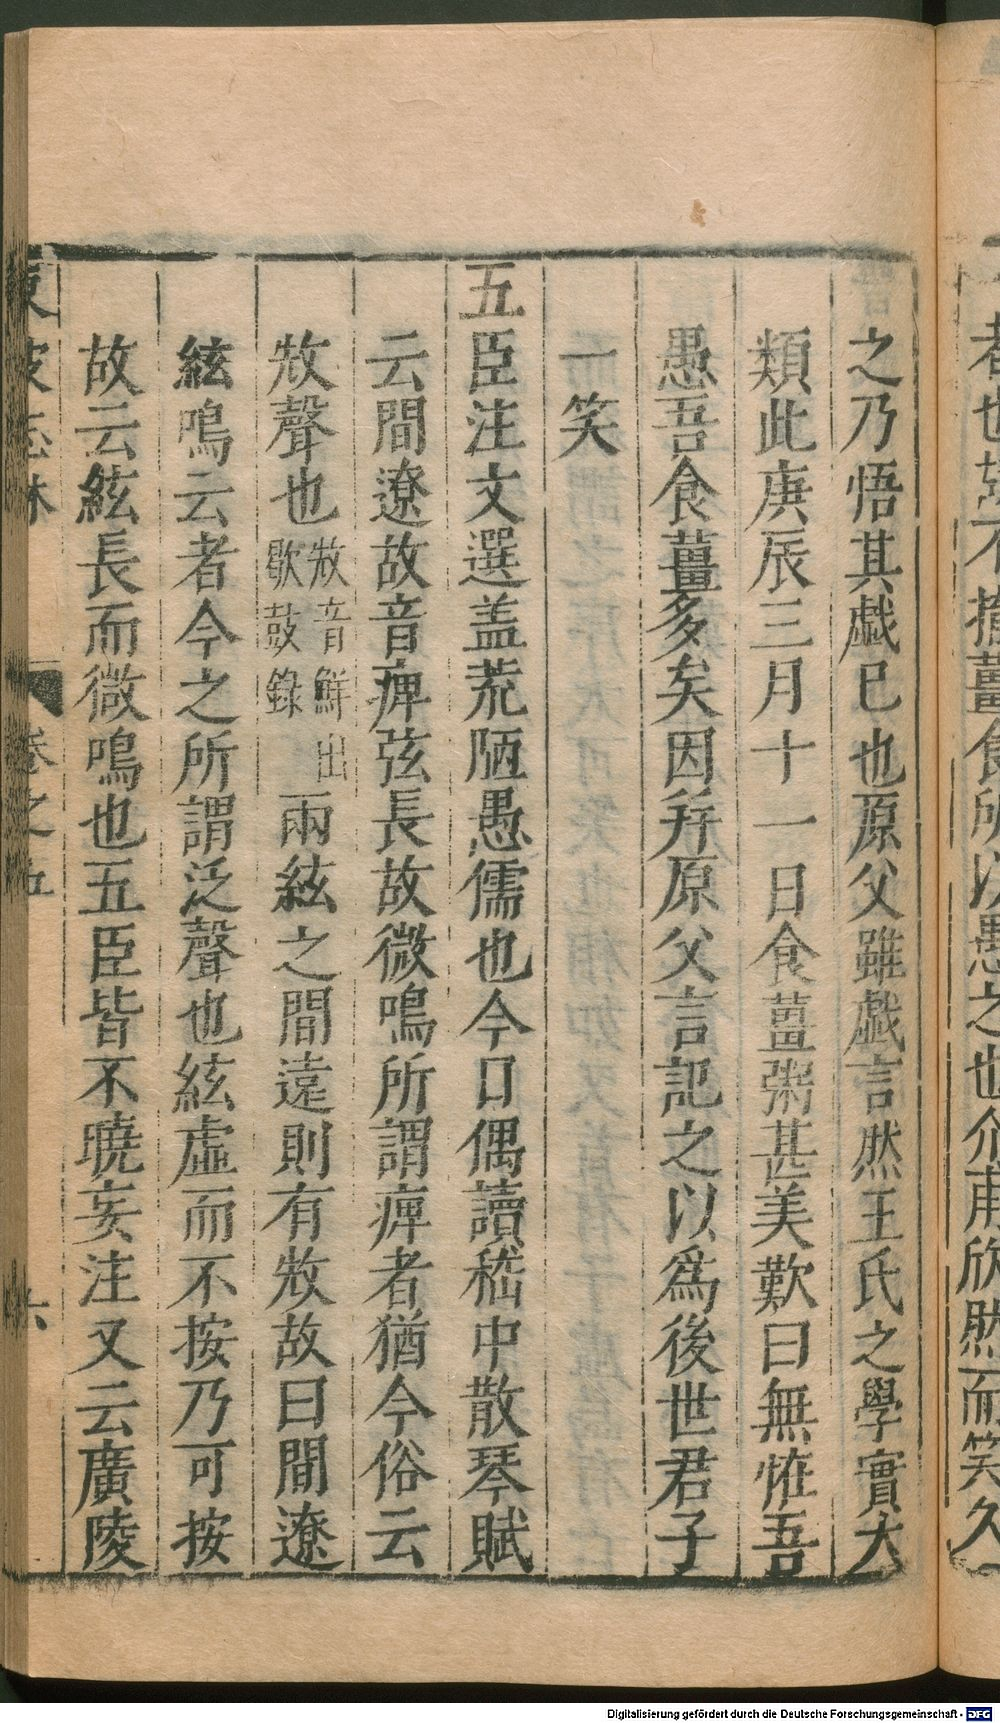 者也
薑食所以愚之也介甫欣然而笑久
之乃悟其戯已也原父雖戯言然王氏之學實大
類此庚辰三月十一日食薑粥甚美歎曰無恠吾
愚吾食薑多矣因并原父言記之以爲後世君子
一笑
五臣注文選盖荒陋愚儒也今日偶讀嵇中散琴賦
云間遼故音痺弦長故微鳴所謂痺者猶今俗云
㪇聲也㪇音鮮出歇鼓錄兩絃之間遠則有㪇故曰間遼
絃鳴云者今之所謂泛聲也絃虛而不按乃可按
故云絃長而微鳴也五臣皆不曉妄注又云廣陵
東坡志林 卷之五 六
Digitalisierung gefördert durch die Deutsche Forschungsgemeinschaft - DFG